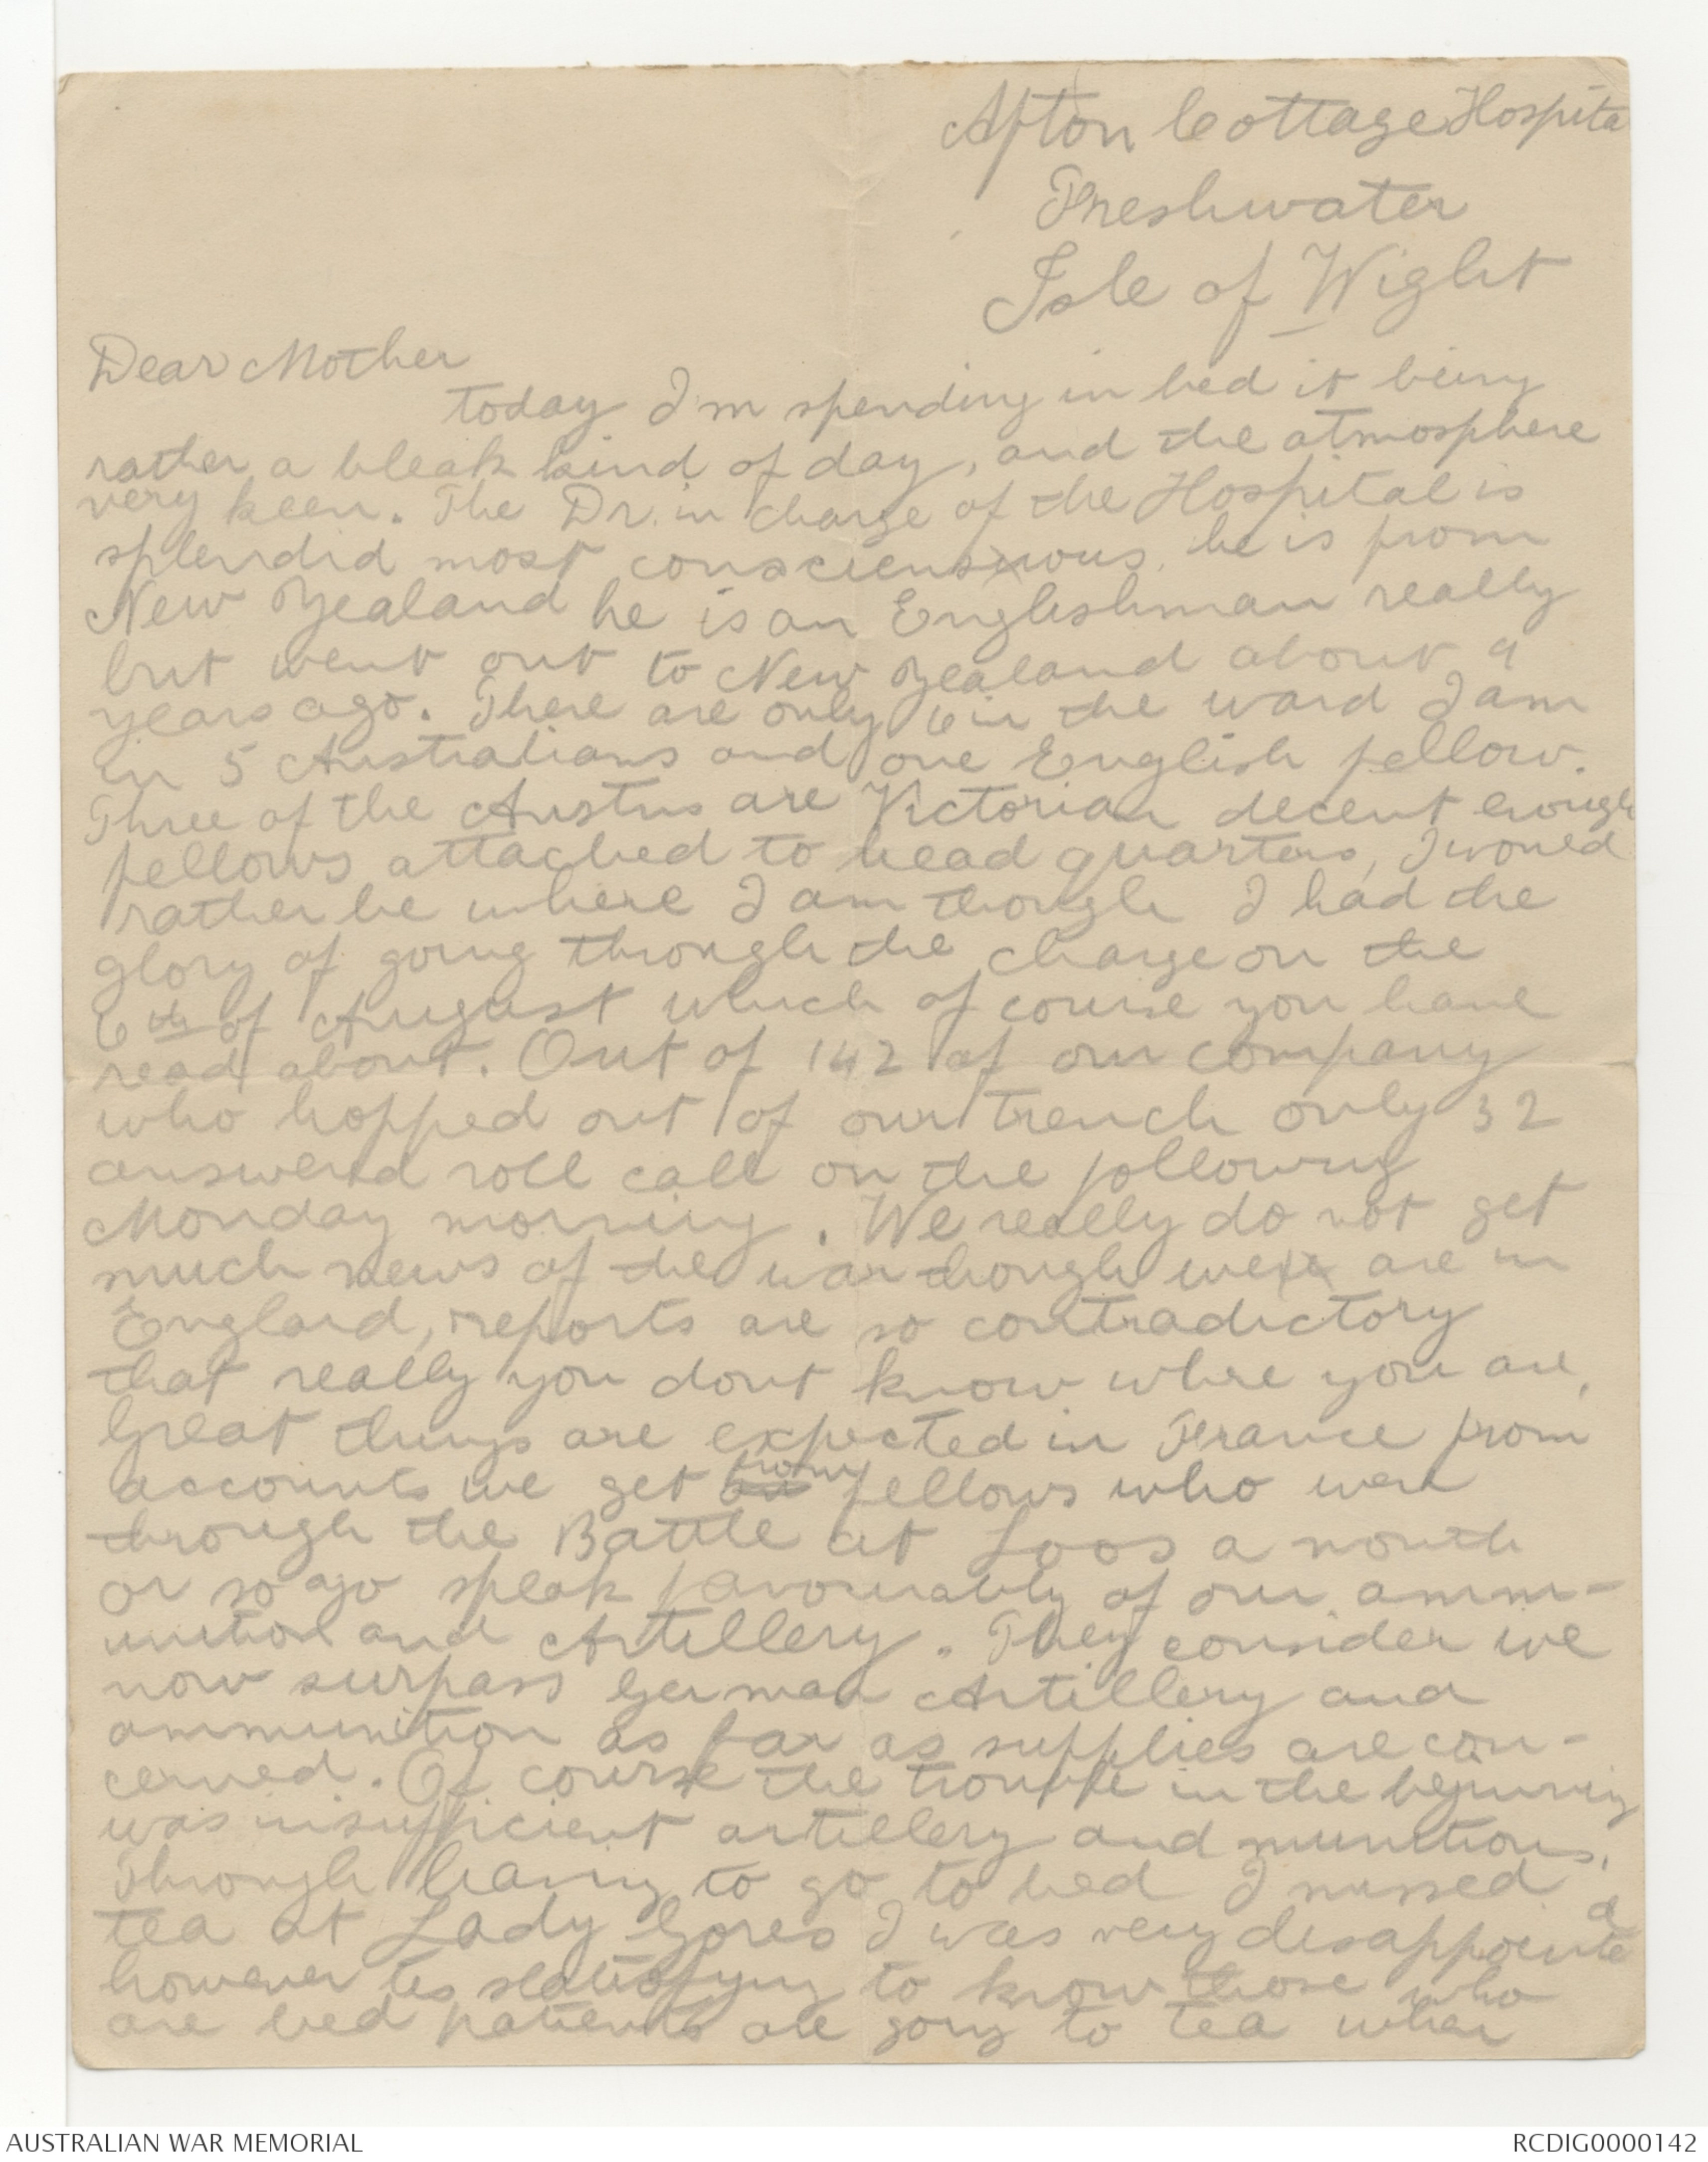 Afton Cottage Hospita
Freshwater
Isle of Wight
Dear Mother
today I'm spending in bed it being
rather a bleak kind of day, and the atmosphere
very keen. The Dr. in charge of the Hospital is
splendid most consciensious, he is from
New Zealand he is an Englishman really
but went out to New Zealand about 9
years ago. There are only 6 in the ward I am
in 5 Australians and one English fellow.
Three of the Austns are Victorian decent enough
fellows attached to head quarters, I would
rather be where I am though I had the
glory of going through the charge on the
6th of August which of course you have
read about. Out of 142 of our company
who hopped out of our trench only 32
answered roll call on the following
Monday morning. We really do not get
much news of the war though we are in
England, reports are so contradictory
that really you dont know where you are,
Great things are expected in France from
accounts we get from fellows who were
through the Battle at Loos a month
or so ago speak favourably of our amm-
unition and Artillery. They consider we
now surpass German Artillery and
ammunition as far as supplies are con-
cerned. Of course the trouble in the beginning
was insufficient artillery and munitions.
Through having to go to bed I missed
tea at Lady Gores I was very disappointed
however tis satisfying to know those who
are bed patients are going to tea when
AUSTRALIAN WAR MEMORIAL
RCDIG0000142